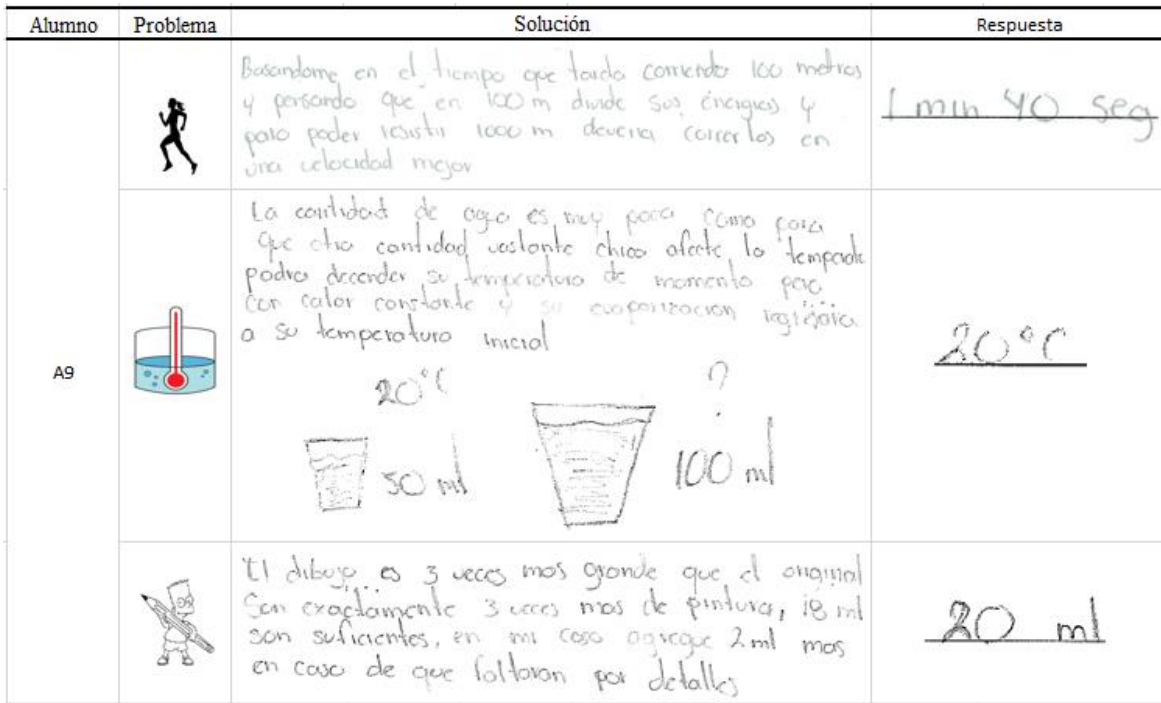 Alumno Problema Solución Respuesta
A9
Basandome en el tiempo que tarda corriendo 100 metros
y pensando que en 100 m divide sus energias y
para poder resistir 1000 m deveria correrlos en
una velocidad mejor
1 min 40 seg
La cantidad de agua es muy poca como para
que otra cantidad vastante chica afecte la temperatu
podra decender su temperatura de momento pero
con calor constante y su evaporizacion
a su temperatura inicial
20°C
50 ml
?
100 ml
20°C
El dibujo es 3 veces mas grande que el original
Son exactamente 3 veces mas de pintura, 18 ml
son suficientes, en mi caso agregue 2 ml mas
en caso de que faltaran por detalles
20 ml